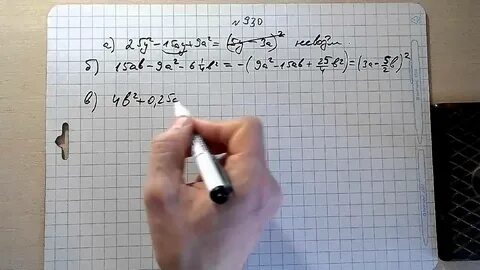 №930
а) 25y²-15ay+9a²=(5y-3a)² невозм.
б) 15ab-9a²-6¼b²=-(9a²-15ab+25/4b²)=(3a-5/2b)²
в) 4b²+0,25a